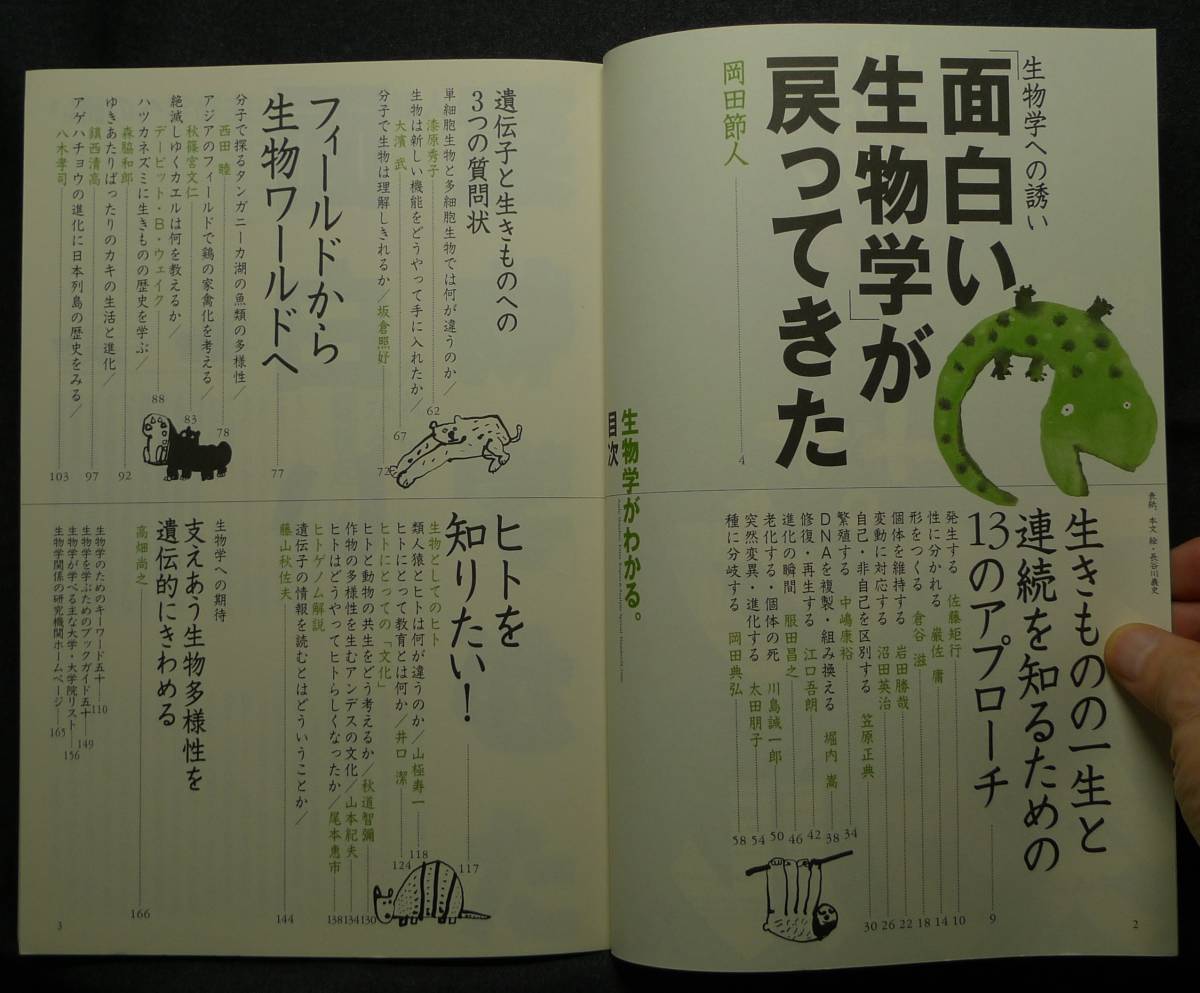 生物学への誘い
「面白い
生物学」が
戻ってきた
岡田節人
4
表紙、本文・絵・長谷川義史
生きものの一生と
連続を知るための
13のアプローチ
9
発生する 佐藤矩行 10
性に分かれる 巌佐 庸 14
形をつくる 倉谷 滋 18
個体を維持する 岩田勝哉 22
変動に対応する 沼田英治 26
自己・非自己を区別する 笠原正典 30
繁殖する 中嶋康裕 34
DNAを複製・組み換える 堀内 嵩 38
修復・再生する 江口吾朗 42
進化の瞬間 服田昌之 46
老化する・個体の死 川島誠一郎 50
突然変異・進化する 太田朋子 54
種に分岐する 岡田典弘 58
2
生物学がわかる。
目次
遺伝子と生きものへの
3つの質問状
単細胞生物と多細胞生物では何が違うのか／
漆原秀子 62
生物は新しい機能をどうやって手に入れたか／
大濱 武 67
分子で生物は理解しきれるか／坂倉照妤 72
フィールドから
生物ワールドへ
77
分子で探るタンガニーカ湖の魚類の多様性／
西田 睦 78
アジアのフィールドで鶏の家禽化を考える／
秋篠宮文仁 83
絶滅しゆくカエルは何を教えるか／
デービット・B・ウェイク 88
ハツカネズミに生きものの歴史を学ぶ／
森脇和郎 92
ゆきあたりばったりのカキの生活と進化／
鎮西清高 97
アゲハチョウの進化に日本列島の歴史をみる／
八木孝司 103
ヒトを
知りたい！
117
生物としてのヒト
類人猿とヒトは何が違うのか／山極寿一 118
ヒトにとって教育とは何か／井口 潔 124
ヒトにとっての「文化」
ヒトと動物の共生をどう考えるか／秋道智彌 130
作物の多様性を生むアンデスの文化／山本紀夫 134
ヒトはどうやってヒトらしくなったか／尾本惠市 138
ヒトゲノム解説
遺伝子の情報を読むとはどういうことか／
藤山秋佐夫 144
生物学への期待
支えあう生物多様性を
遺伝的にきわめる
高畑尚之 166
生物学のためのキーワード五十 110
生物学を学ぶためのブックガイド五十 149
生物学が学べる主な大学・大学院リスト 156
生物学関係の研究機関ホームページ 165
3